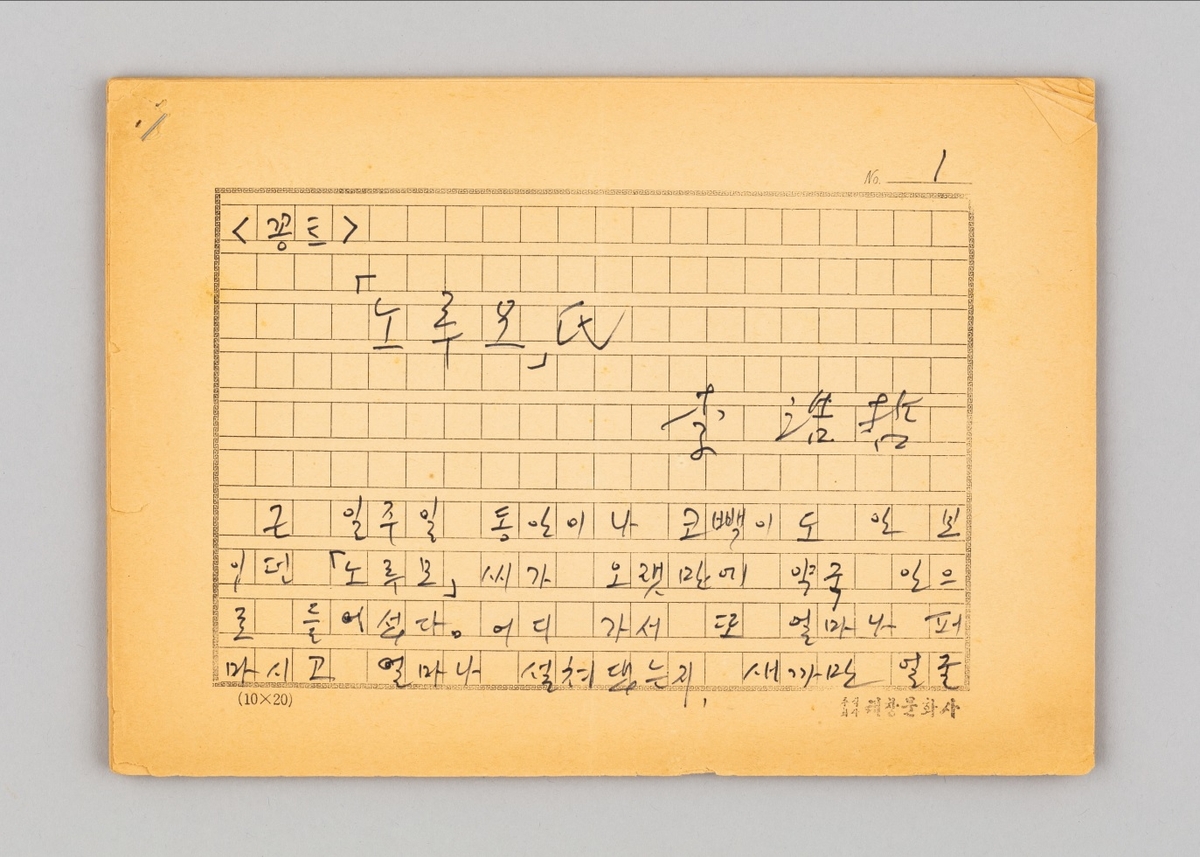 No. 1
<꽁트>
「노루모」氏
李
근 일주일 동안이나 코빼이도 안 보
이던 「노루모」씨가 오랫만에 약국 안으
로 들어섰다. 어디 가서 또 얼마나 퍼
마시고 얼마나 설쳐댔는지, 새까만 얼굴
(10×20)
문화사